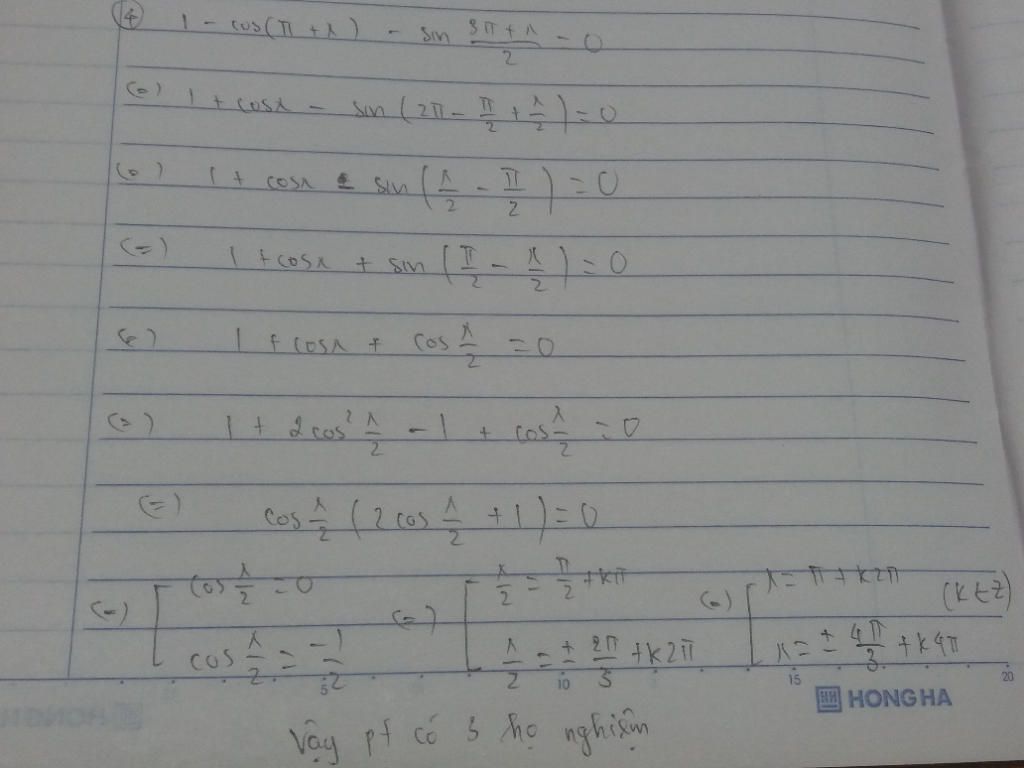 ④ 1 - cos(π + x) - sin (3π + x)/2 = 0
(=) 1 + cosx - sin (2π - π/2 + x/2) = 0
(=) 1 + cosx - sin (x/2 - π/2) = 0
(=) 1 + cosx + sin (π/2 - x/2) = 0
(=) 1 + cosx + cos x/2 = 0
(=) 1 + 2cos² x/2 - 1 + cos x/2 = 0
(=) cos x/2 (2cos x/2 + 1) = 0
(=) [ cos x/2 = 0 (=) [ x/2 = π/2 + kπ (=) [ x = π + k2π (k ∈ Z)
cos x/2 = -1/2 x/2 = ± 2π/3 + k2π x = ± 4π/3 + k4π
5 10 15 20
HONG HA
Vậy pt có 3 họ nghiệm